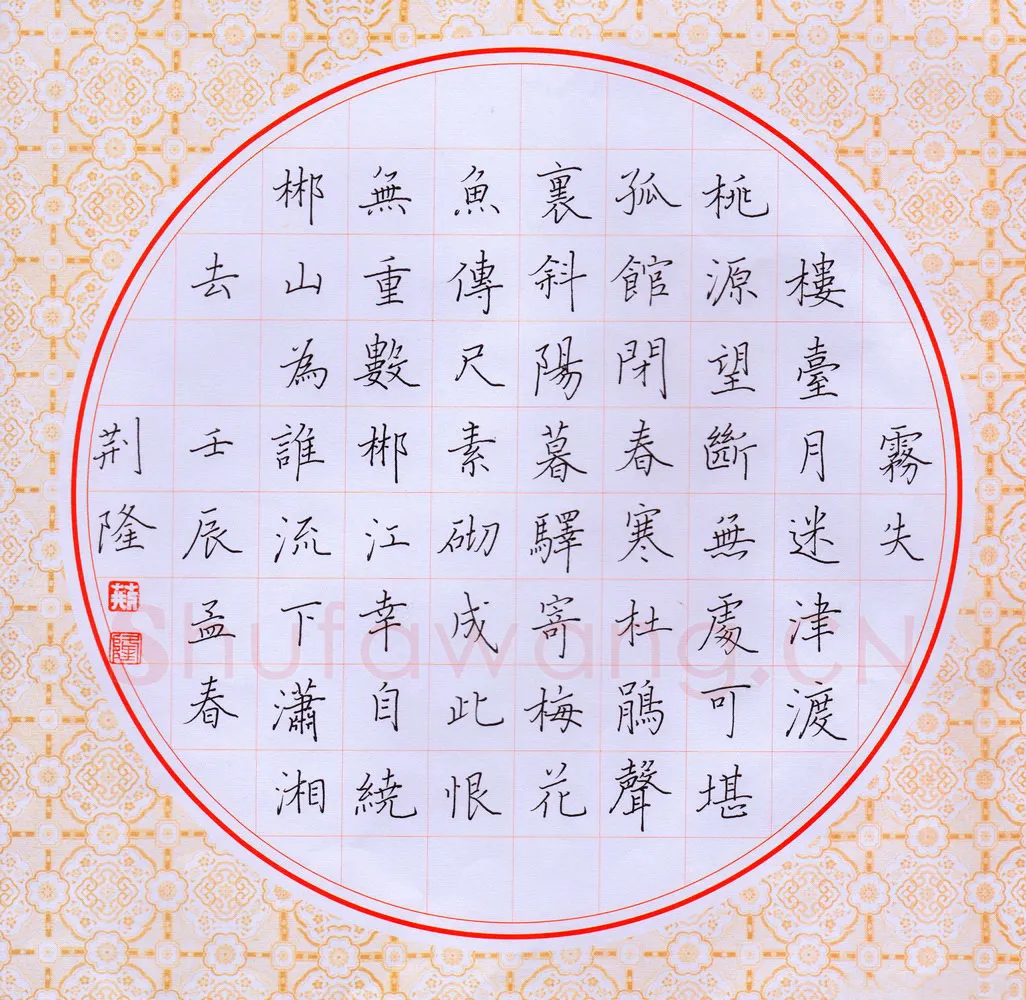 霧失
樓臺月迷津渡
桃源望斷無處可堪
孤館閉春寒杜鵑聲
裏斜陽暮驛寄梅花
魚傳尺素砌成此恨
無重數郴江幸自繞
郴山為誰流下瀟湘
去 壬辰孟春
荆隆
Shufawang.CN